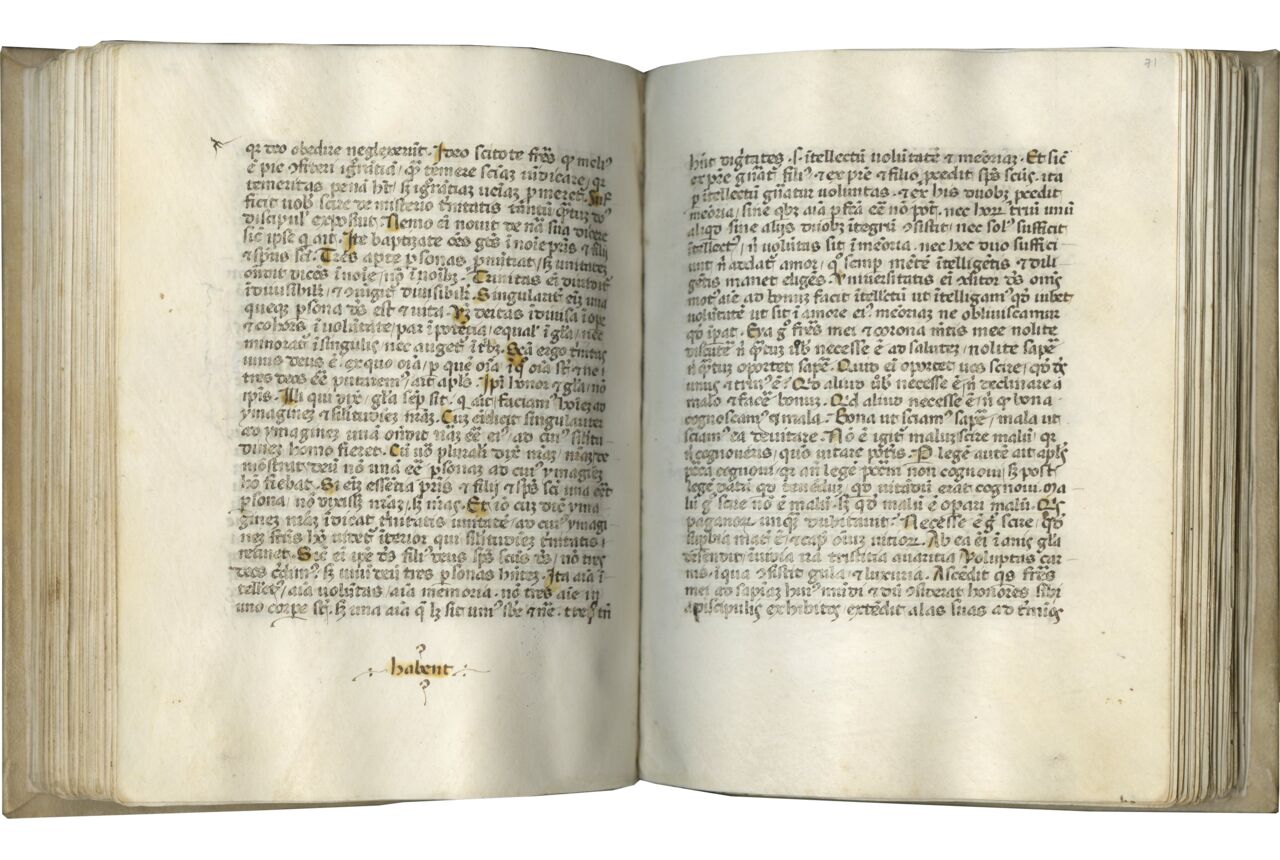 qr deo obedire neglexerūt. Ideo scitote frēs qp meliꝰ
ē pie ꝯfiteri ignrātiā qꝫ temere sciaꝫ uēdicare qr
temeritas penā hꝫ sꝫ ignrātiaꝫ ueiaꝫ pmeret. Suf
ficit uob scire de misterio trinitatis tm̄ qꝫtuꝫ dn̄s
discipul exposuit. Nemo ei nouit de nā sua dicere
sic ipse q ait. Ite baptizate oēs gēs ī noīe pris & filij
& spus sci. Tres apte psonas pnūtiat sꝫ unitateꝫ
ondit dicēs ī noīe nō ī noībꝫ. Trinitas ei diuidit
īdiuisibilr & ꝯiūgit diuisibilr. Singularit eiꝫ una
queqꝫ psona ds est & uita. Vꝫ deitas īdiuisa
& cohors ī volūtate par ī potētia equal ī gla nec
minorat ī singulis nec auget ī tbꝫ. Scā ergo trinitas
unus deus ē ex quo oīa p quē oīa ī q oīa sꝫ ne
tres deos eē putaremꝰ ait apls. Ipi honor & gla nō
ipis. Illi qui dix gla semp sit. q ait faciamꝰ hoieꝫ ad
ymagineꝫ & silitudieꝫ nrāꝫ. Cuꝫ ei dicit singularit
ad ymagineꝫ unā ondit nāꝫ eē eiꝰ ad cuiꝰ silitu
dineꝫ homo fieret. Cū uō pluralr dix nrāꝫ
mōstrat deū nō unā eē psonaꝫ ad cuiꝰ ymagieꝫ
hō fiebat. Si eiꝫ essētia pris & filij & sps sci una eēt
psona nō dixisꝫ nrāꝫ sꝫ meāꝫ. Et iō cuꝫ dix yma
gineꝫ nrāꝫ īdicat trinitatis unitatē ad cuiꝰ ymagi
neꝫ fcūs hō uidet īterior qui silitudieꝫ trinitatis
retinat. Sic ei ipe ds filiꝰ deus sps scūs ds nō tres
deos cdimꝰ sꝫ unū deū tres psonas hnteꝫ. Ita aīa ī
tellectꝰ aīa volūtas aīa memoria. nō tres aīe in
uno corpe sꝫ sꝫ una aīa q lꝫ sit unꝰ sbe & nē. tres tn̄
habent
71
hnt dignitates .s. ītellectū uolūtatē & meōriaꝫ. Et sic
ex pre gnat filiꝰ & ex pre & filio pcedit sps scūs. ita
p ītellectū gnatur uoluntas. & ex his duobꝫ pcedit
meōria sine qbꝫ aīa pfcā eē nō pōt. nec horꝫ triū unū
aliqd sine alijs duobꝫ ītegrū ꝯsistit nec solꝰ sufficit
ītellectꝰ n uolūtas sit ī meōria. nec hec duo suffici
unt n addat amor qꝰ semp mēte ītelligētis & dili
gētis manet eligēs. Vniuersitatis ei ꝯditor ds omīs
motꝰ aīe ad bonuꝫ facit ītellectū ut ītelligamꝰ qd iubet
uolūtatē ut sit ī amore eiꝰ meōriaꝫ ne obliuiscamur
qd īpat. Eya g frēs mei & corona mētis mee nolite
discutē n qꝫtuꝫ uob necesse ē ad saluteꝫ nolite sapē
n qꝫtuꝫ oportet sapē. Quid ei oportet uos scire qd ds
unꝰ & trinꝰ ē? Qd aliud uob necesse ē n declinare a
malo & facē bonuꝫ. Qd aliud necesse ē n q bona
cognoscamꝰ & mala. Bona ut sciamꝰ sapē mala ut
sciamꝰ ea deuitare. Nō ē igit maluꝫ scire malū qr
n cognoueris quō uitare potis. P legē autē ait apls
pctā cognoui qr an legē pctm non cognoui sꝫ post
legē datā qd tenēduꝫ qd uitādū erat cognoui. Ma
lū g scire nō ē malū sꝫ qd malū ē opari malū.
paganorꝫ unqꝫ dubitauit. Necesse ē g scire qd
supbia mat ē & caput oiuꝫ uitiorꝫ. Ab ea ei ī anis gla
descendit īuidia ira tristitia auaritia Voluptas car
nis ī qua ꝯsistit gula & luxuria. Ascēdit qs frēs
mei ad sapiaꝫ huiꝰ mūdi & dū ꝯsiderat honores sibi
a piscipulis exhibitos extēdit alas suas ad